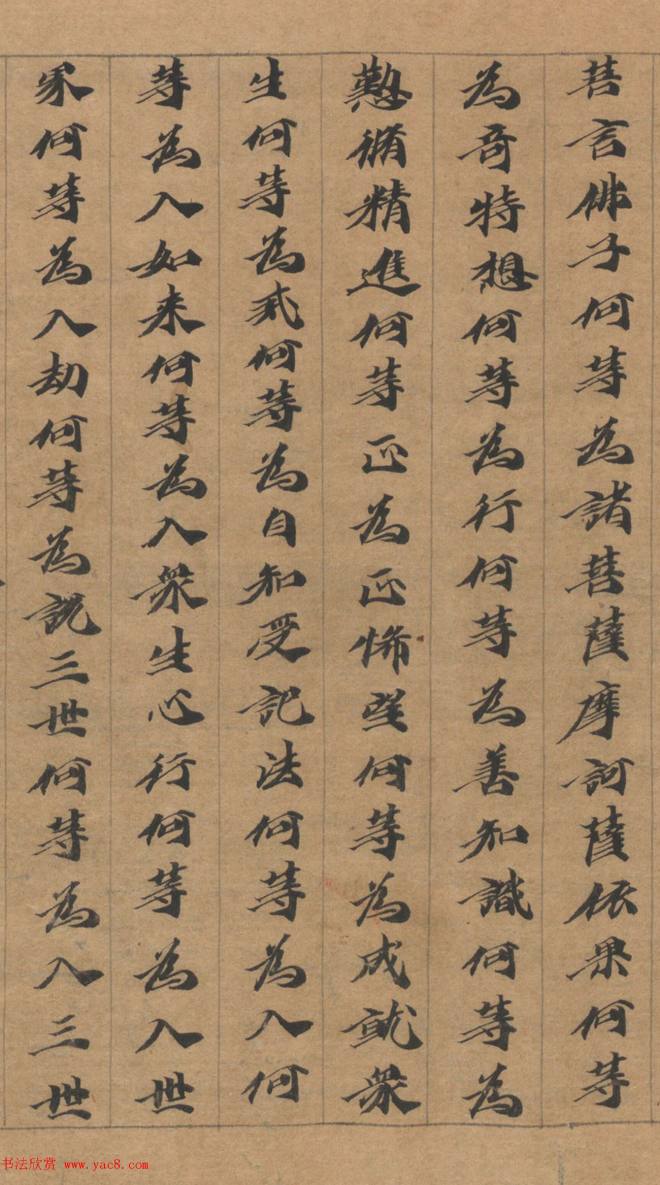 菩言佛子何等為諸菩薩摩訶薩依果何等
為奇特想何等為行何等為善知識何等為
懃脩精進何等正為正悕望何等為成就衆
生何等為戒何等為自知受記法何等為入何
等為入如来何等為入衆生心行何等為入世
界何等為入劫何等為說三世何等為入三世
书法欣赏 www.yac8.com